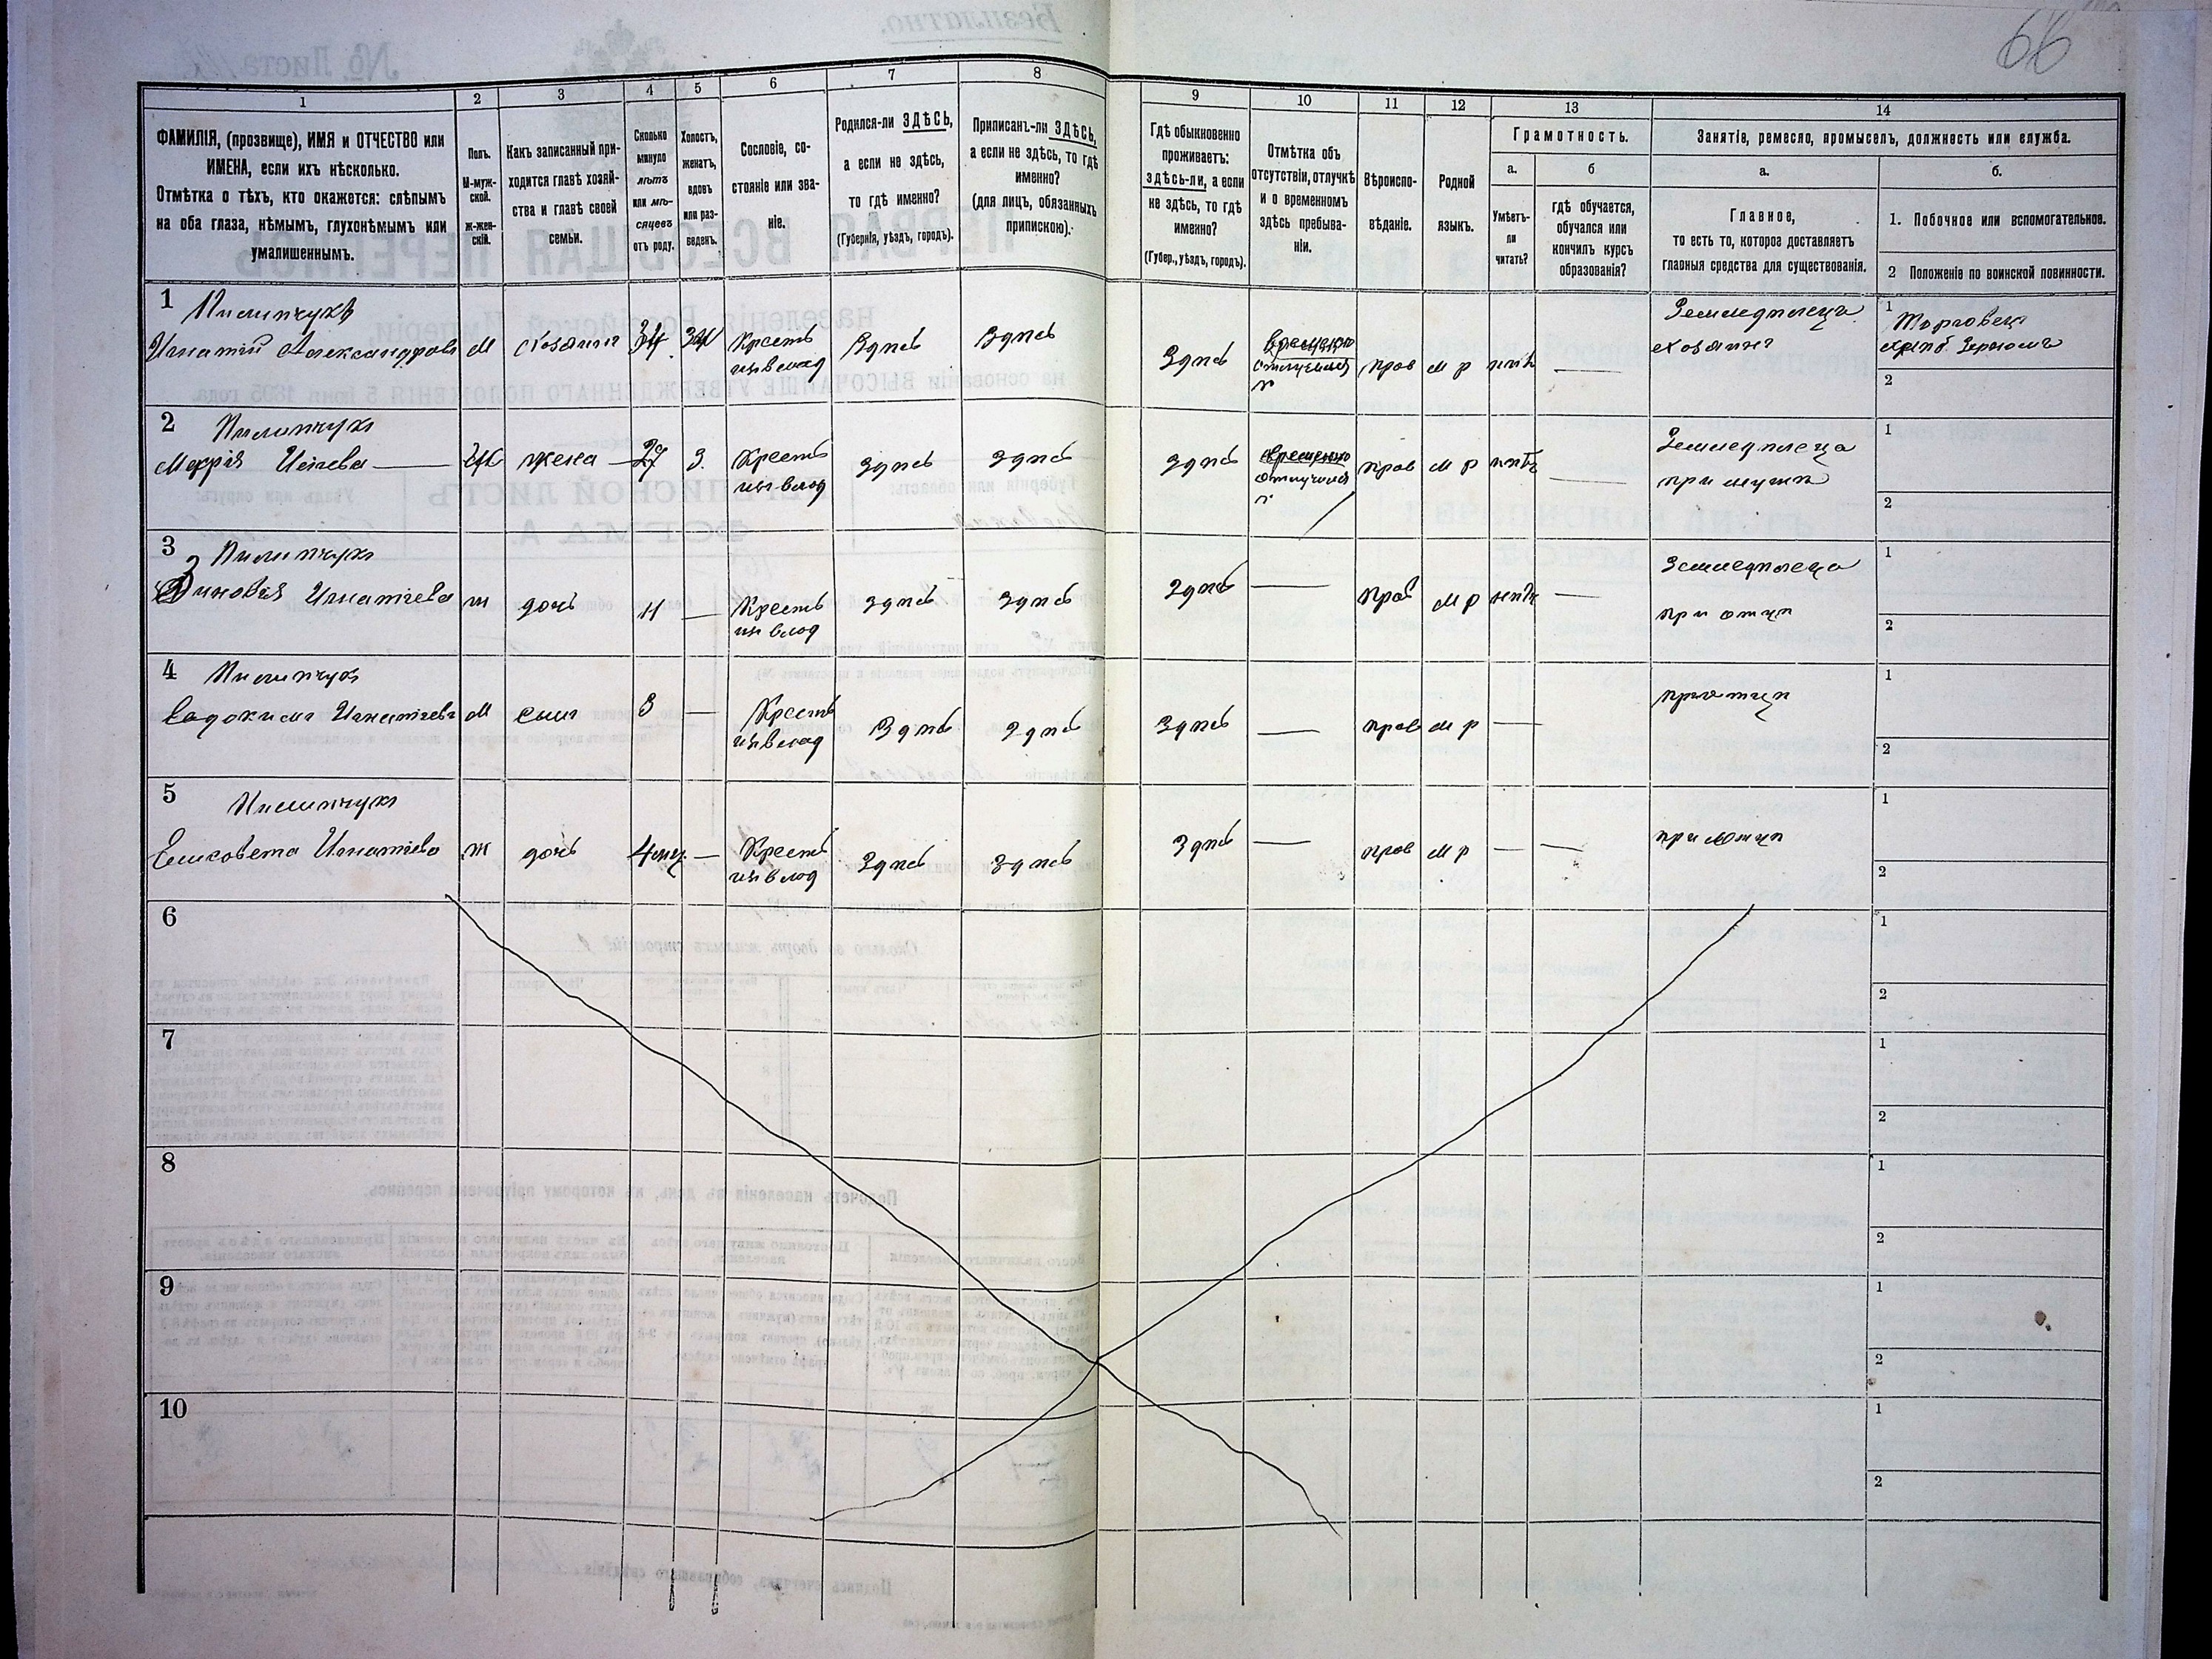 66
1
2
3
4
5
6
7
8
9
10
11
12
13
14
ФАМИЛІЯ, (прозвище), ИМЯ и ОТЧЕСТВО или
ИМЕНА, если ихъ нѣсколько.
Отмѣтка о тѣхъ, кто окажется: слѣпымъ
на оба глаза, нѣмымъ, глухонѣмымъ или
умалишеннымъ.
Полъ.
М-муж-
ской.
ж-жен-
скій.
Какъ записанный при-
ходится главѣ хозяй-
ства и главѣ своей
семьи.
Сколько
минуло
лѣтъ
или мѣ-
сяцевъ
отъ роду.
Холостъ,
женатъ,
вдовъ
или раз-
веденъ.
Сословіе, со-
стояніе или зва-
ніе.
Родился-ли ЗДѢСЬ,
а если не здѣсь,
то гдѣ именно?
(Губернія, уѣздъ, городъ).
Приписанъ-ли ЗДѢСЬ,
а если не здѣсь, то гдѣ
именно?
(для лицъ, обязанныхъ
припискою).
Гдѣ обыкновенно
проживаетъ:
здѣсь-ли, а если
не здѣсь, то гдѣ
именно?
(Губер., уѣздъ, городъ).
Отмѣтка объ
отсутствіи, отлучкѣ
и о временномъ
здѣсь пребыва-
ніи.
Вѣроиспо-
вѣданіе.
Родной
языкъ.
Грамотность.
а.
Умѣетъ-
ли
читать?
б
гдѣ обучается,
обучался или
кончилъ курсъ
образованія?
Занятія, ремесло, промыселъ, должность или служба.
а.
Главное,
то есть то, которое доставляетъ
главныя средства для существованія.
б.
1. Побочное или вспомогательное.
2 Положеніе по воинской повинности.
1 Пилипчукъ
Игнатій Александровъ М хозяинъ 34 жен Крестъ здѣсь здѣсь здѣсь временно прав м р нѣтъ — Земледѣлецъ 1 Торговецъ
изъ влад отлучился хозяинъ зерномъ
2
2 Пилипчукъ
Марія Ж жена 27 З. Крестъ здѣсь здѣсь здѣсь временно прав м р нѣтъ — Земледѣлеца 1
изъ влад отлучился при мужѣ 2
3 Пилипчукъ
Зиновія Игнатіева ж дочь 11 — Крестъ здѣсь здѣсь здѣсь — прав м р нѣтъ — Земледѣлеца 1
изъ влад при отцѣ 2
4 Пилипчукъ
Евдокимъ Игнатіевъ М сынъ 3 — Крестъ здѣсь здѣсь здѣсь — прав м р — при отцѣ 1
изъ влад 2
5 Пилипчукъ
Елисовета Игнатіева ж дочь 4 мц. — Крестъ здѣсь здѣсь здѣсь — прав м р — — при отцѣ 1
изъ влад 2
6 1
2
7 1
2
8 1
2
9 1
2
10 1
2